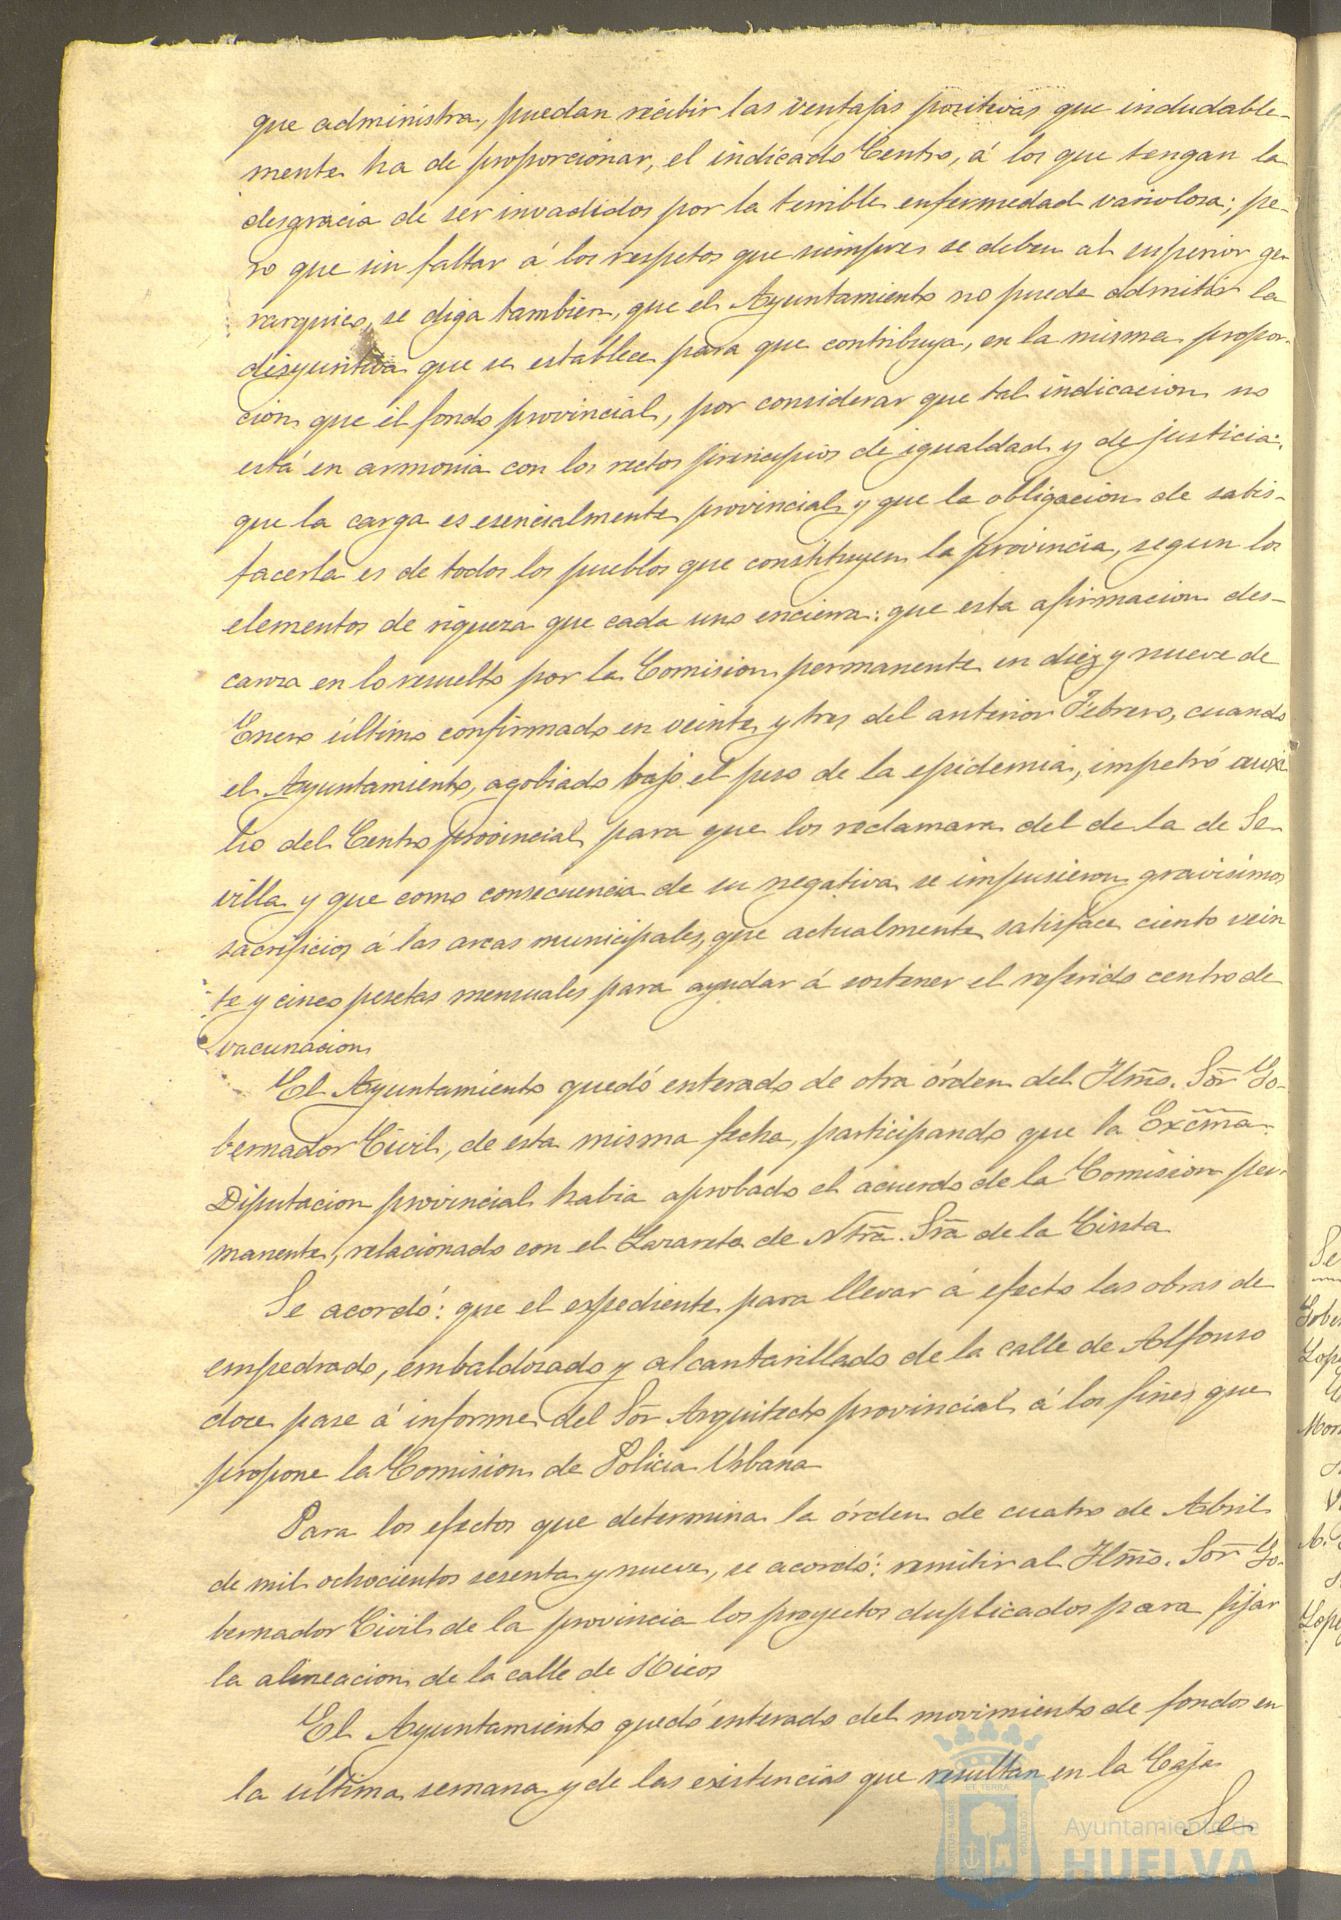 que administra, puedan recibir las ventajas positivas que indudable-
mente ha de proporcionar, el indicado Centro, á los que tengan la
desgracia de ser invadidos por la terrible enfermedad variolosa; pe-
ro que sin faltar á los respetos que siempre se deben al superior ge-
rarquico, se diga tambien, que el Ayuntamiento no puede admitir la
disyuntiva que se establece para que contribuya, en la misma propor-
cion que el fondo provincial, por considerar que tal indicacion no
está en armonia con los rectos principios de igualdad y de justicia:
que la carga es esencialmente provincial y que la obligacion de satis-
facerla es de todos los pueblos que constituyen la provincia, segun los
elementos de riqueza que cada uno encierra: que esta afirmacion des-
canza en lo resuelto por la Comision permanente en diez y nueve de
Enero último confirmado en veinte y tres del anterior Febrero, cuando
el Ayuntamiento, agobiado bajo el peso de la epidemia, impetró auxi
lio del Centro provincial para que los reclamara del de la de Se-
villa y que como consecuencia de su negativa se impusieron gravisimos
sacrificios á las arcas municipales, que actualmente satisface ciento vein
te y cinco pesetas mensuales para ayudar á sostener el referido centro de
vacunacion
El Ayuntamiento quedó enterado de otra órden del Ilmo. Sor Go-
bernador Civil, de esta misma fecha, participando que la Excma.
Diputacion provincial habia aprobado el acuerdo de la Comision per-
manente, relacionado con el Lazareto de Ntra. Sra de la Cinta
Se acordó: que el expediente para llevar á efecto las obras de
empedrado, embaldosado y alcantarillado de la calle de Alfonso
doce pase á informe del Sor Arquitecto provincial á los fines que
propone la Comision de Policia Urbana
Para los efectos que determina la órden de cuatro de Abril
de mil ochocientos sesenta y nueve, se acordó: remitir al Ilmo. Sor Go-
bernador Civil de la provincia los proyectos duplicados para fijar
la alineacion de la calle de Ricos
El Ayuntamiento quedó enterado del movimiento de fondos en
la última semana y de las existencias que resultan en la Caja
Se
Ayuntamiento de
HUELVA